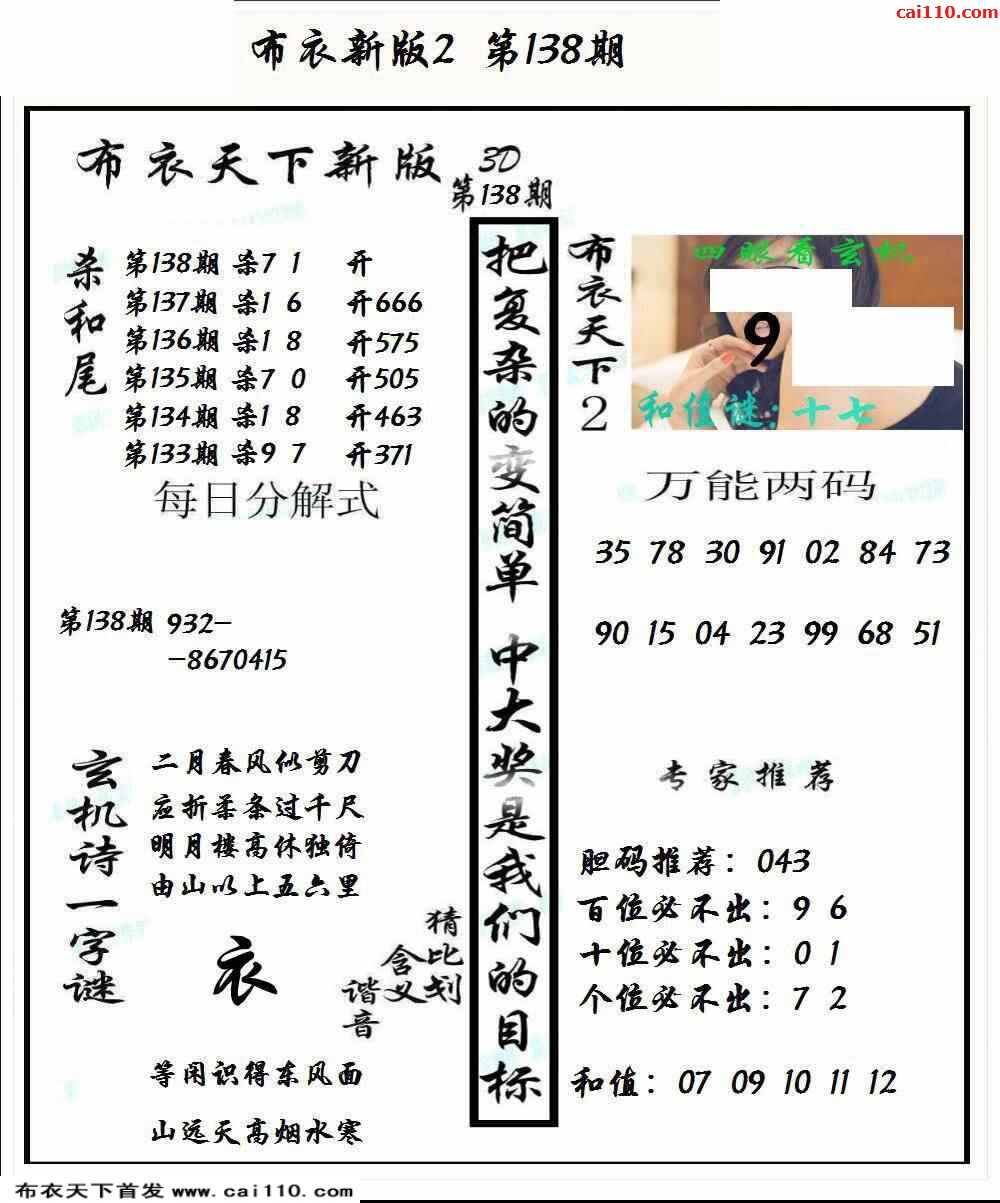 cai110.com
布衣新版2 第138期
布衣天下新版
3D
第138期
杀和尾
第138期 杀7 1 开
第137期 杀1 6 开666
第136期 杀1 8 开575
第135期 杀7 0 开505
第134期 杀1 8 开463
第133期 杀9 7 开371
每日分解式
第138期 932-
-8670415
玄机诗一字谜
二月春风似剪刀
应折柔条过千尺
明月楼高休独倚
由山以上五六里
衣
猜比划
含义
谐音
等闲识得东风面
山远天高烟水寒
把复杂的变简单 中大奖是我们的目标
布衣天下2
四眼看玄机
9
和值谜:十七
万能两码
35 78 30 91 02 84 73
90 15 04 23 99 68 51
专家推荐
胆码推荐：043
百位必不出：9 6
十位必不出：0 1
个位必不出：7 2
和值：07 09 10 11 12
布衣天下首发 www.cai110.com